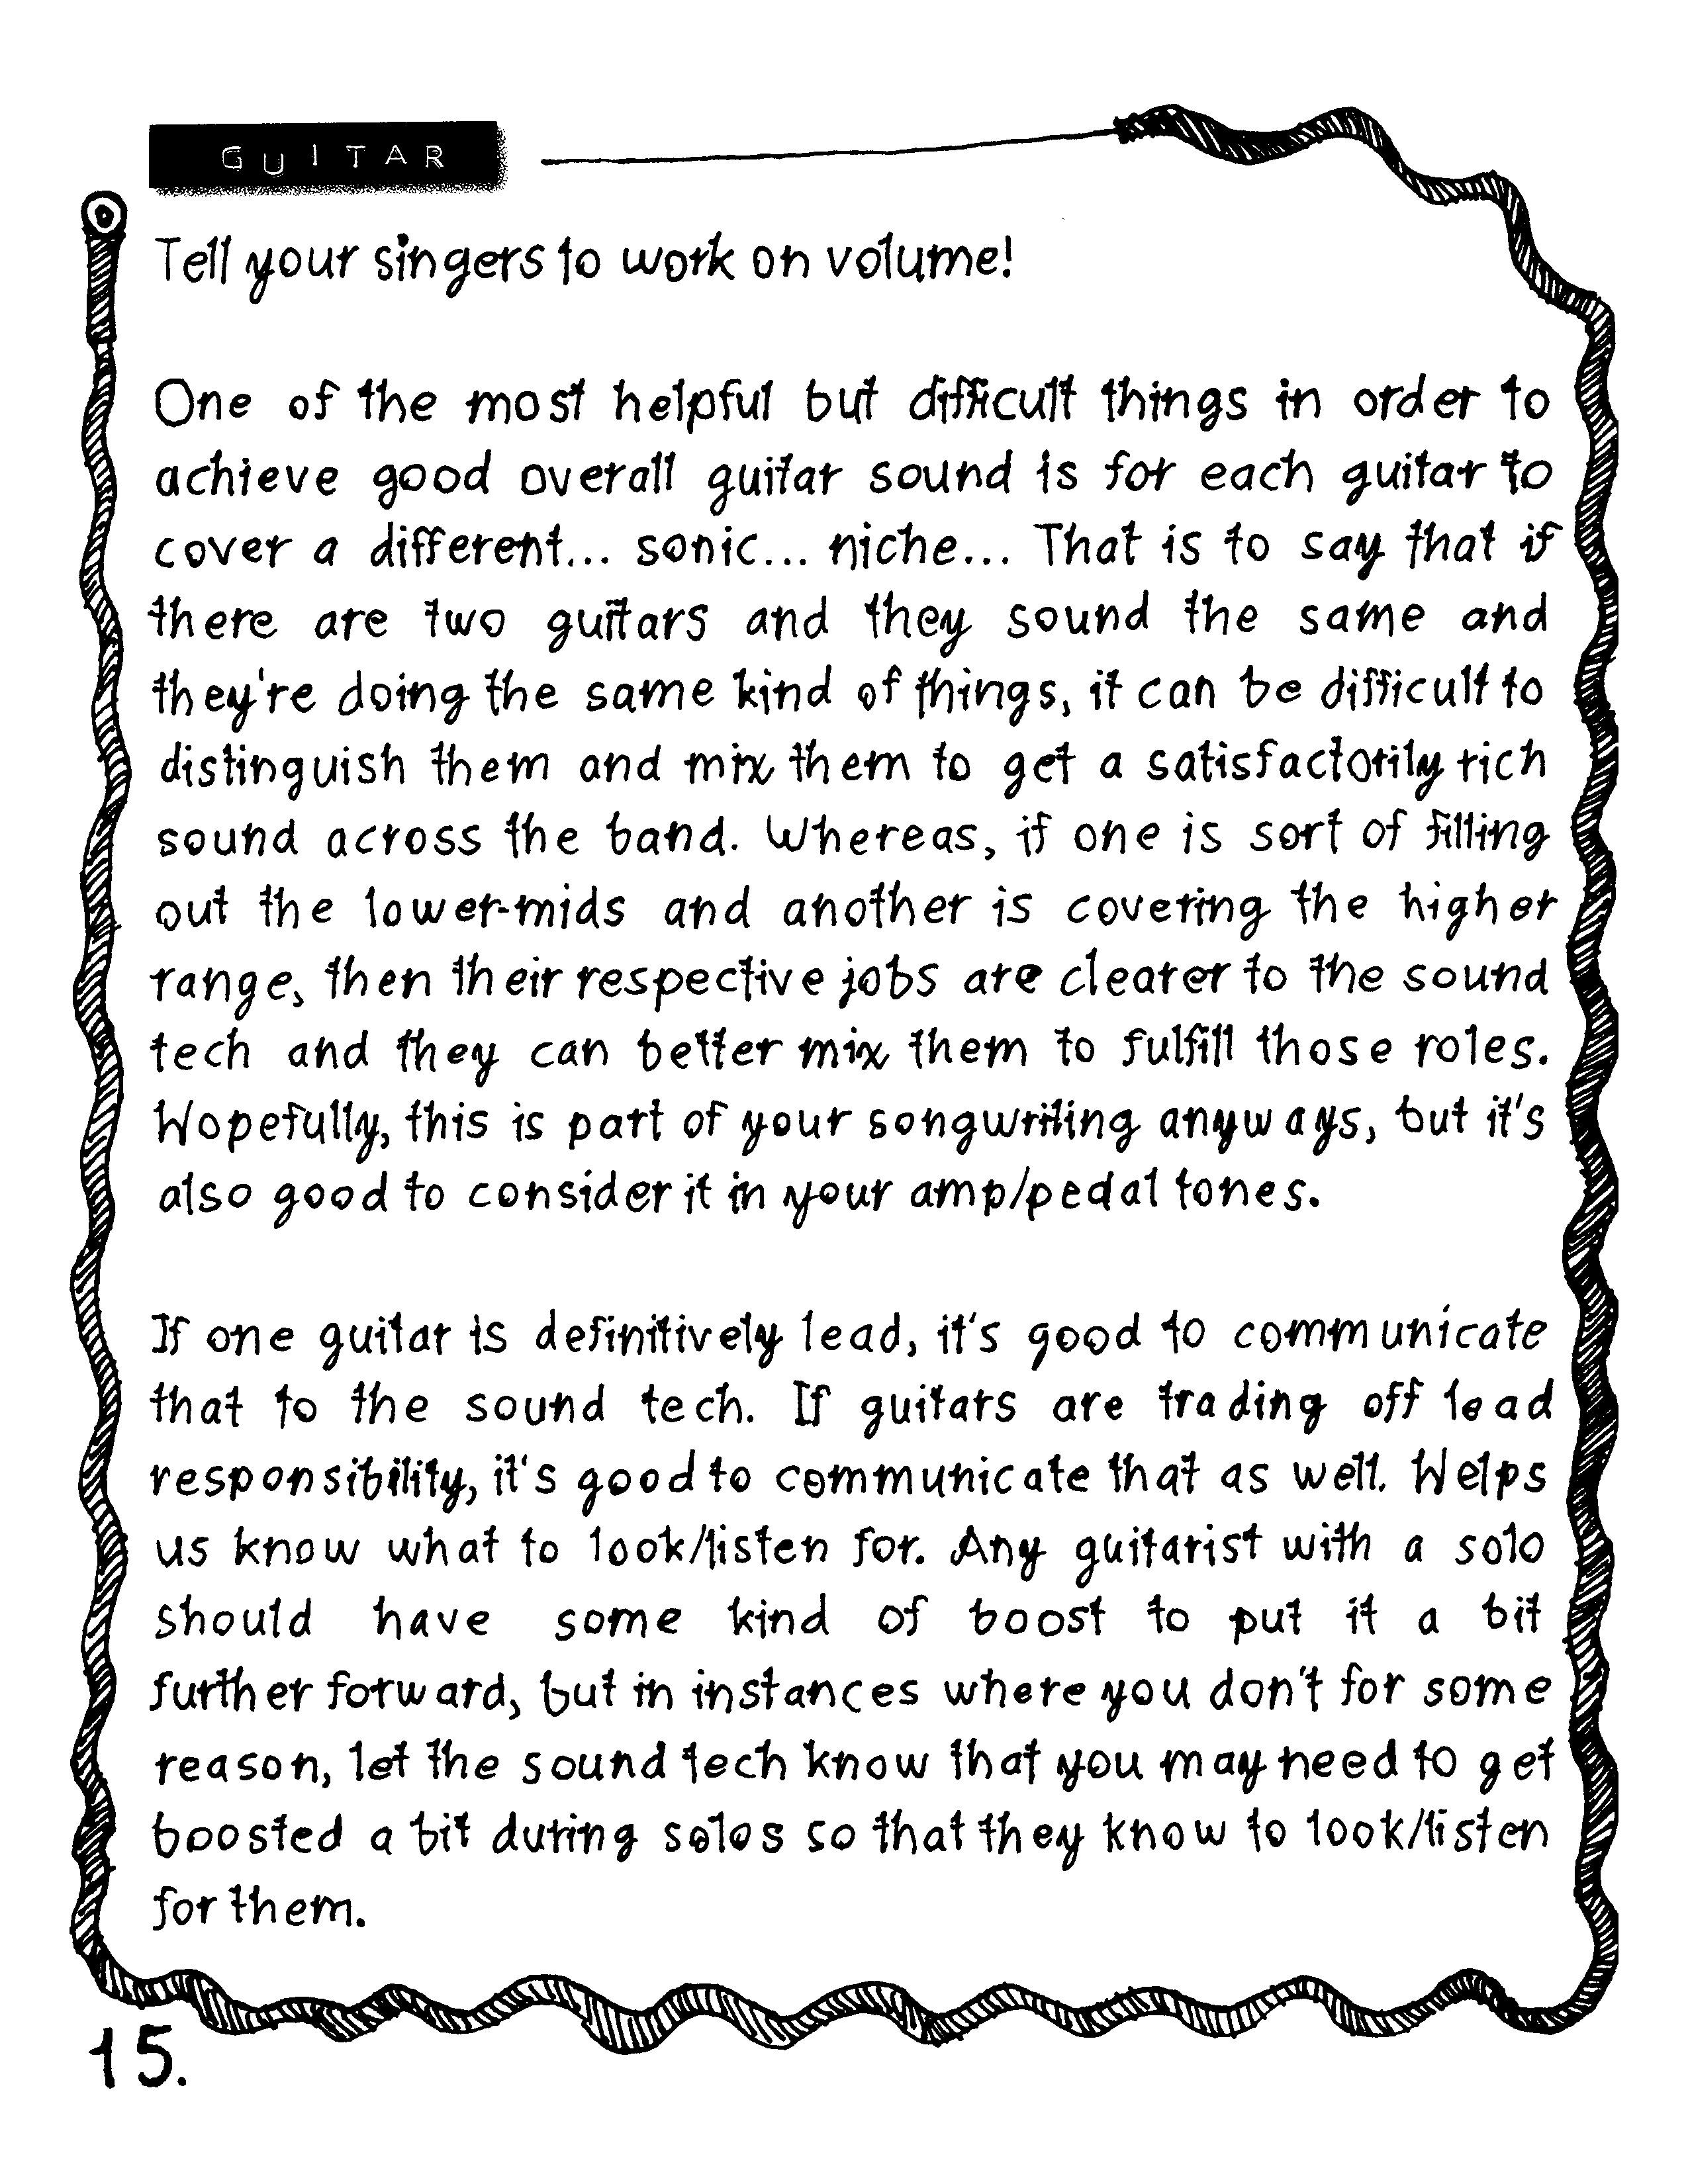 GUITAR
Tell your singers to work on volume!
One of the most helpful but difficult things in order to
achieve good overall guitar sound is for each guitar to
cover a different... sonic... niche... That is to say that if
there are two guitars and they sound the same and
they're doing the same kind of things, it can be difficult to
distinguish them and mix them to get a satisfactorily rich
sound across the band. Whereas, if one is sort of filling
out the lower-mids and another is covering the higher
range, then their respective jobs are clearer to the sound
tech and they can better mix them to fulfill those roles.
Hopefully, this is part of your songwriting anyways, but it's
also good to consider it in your amp/pedal tones.
If one guitar is definitively lead, it's good to communicate
that to the sound tech. If guitars are trading off lead
responsibility, it's good to communicate that as well. Helps
us know what to look/listen for. Any guitarist with a solo
should have some kind of boost to put it a bit
further forward, but in instances where you don't for some
reason, let the sound tech know that you may need to get
boosted a bit during solos so that they know to look/listen
for them.
15.